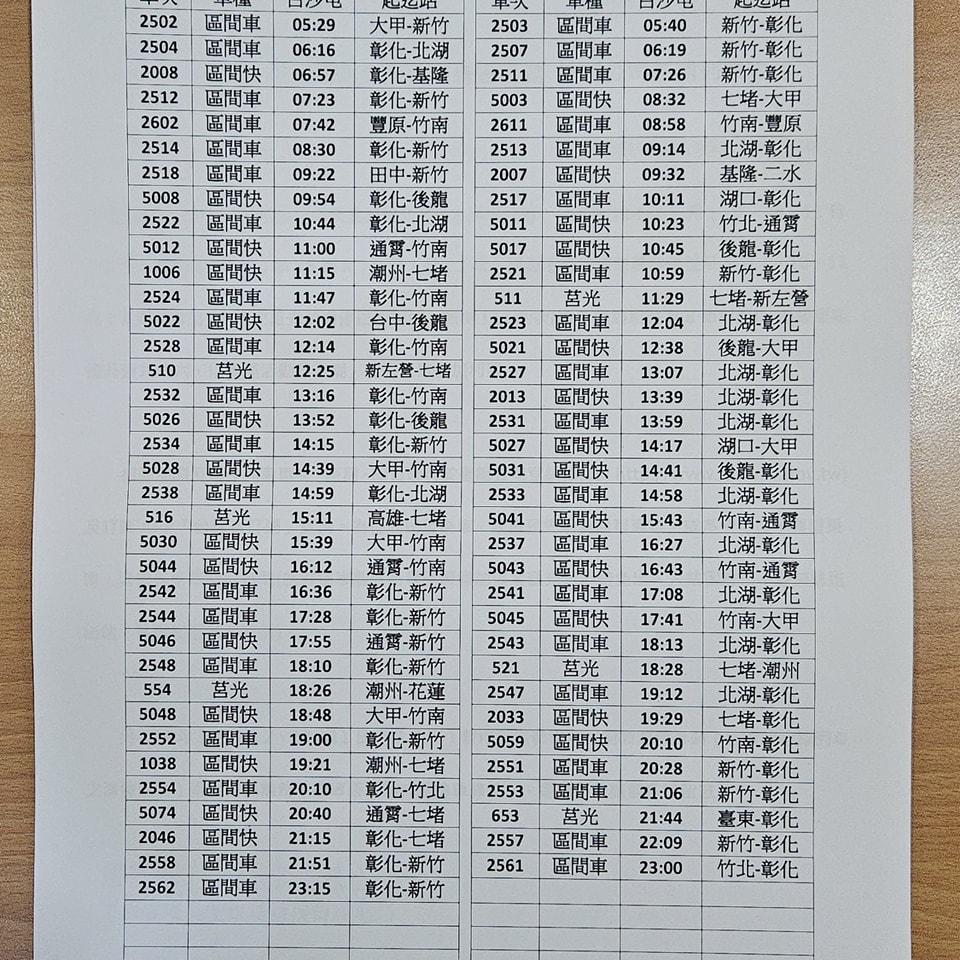 車次 車種 白沙屯 起迄站 車次 車種 白沙屯 起迄站
2502 區間車 05:29 大甲-新竹 2503 區間車 05:40 新竹-彰化
2504 區間車 06:16 彰化-北湖 2507 區間車 06:19 新竹-彰化
2008 區間快 06:57 彰化-基隆 2511 區間車 07:26 新竹-彰化
2512 區間車 07:23 彰化-新竹 5003 區間快 08:32 七堵-大甲
2602 區間車 07:42 豐原-竹南 2611 區間車 08:58 竹南-豐原
2514 區間車 08:30 彰化-新竹 2513 區間車 09:14 北湖-彰化
2518 區間車 09:22 田中-新竹 2007 區間快 09:32 基隆-二水
5008 區間快 09:54 彰化-後龍 2517 區間車 10:11 湖口-彰化
2522 區間車 10:44 彰化-北湖 5011 區間快 10:23 竹北-通霄
5012 區間快 11:00 通霄-竹南 5017 區間快 10:45 後龍-彰化
1006 區間快 11:15 潮州-七堵 2521 區間車 10:59 新竹-彰化
2524 區間車 11:47 彰化-竹南 511 莒光 11:29 七堵-新左營
5022 區間快 12:02 台中-後龍 2523 區間車 12:04 北湖-彰化
2528 區間車 12:14 彰化-竹南 5021 區間快 12:38 後龍-大甲
510 莒光 12:25 新左營-七堵 2527 區間車 13:07 北湖-彰化
2532 區間車 13:16 彰化-竹南 2013 區間快 13:39 北湖-彰化
5026 區間快 13:52 彰化-後龍 2531 區間車 13:59 北湖-彰化
2534 區間車 14:15 彰化-新竹 5027 區間快 14:17 湖口-大甲
5028 區間快 14:39 大甲-竹南 5031 區間快 14:41 後龍-彰化
2538 區間車 14:59 彰化-北湖 2533 區間車 14:58 北湖-彰化
516 莒光 15:11 高雄-七堵 5041 區間快 15:43 竹南-通霄
5030 區間快 15:39 大甲-竹南 2537 區間車 16:27 北湖-彰化
5044 區間快 16:12 通霄-竹南 5043 區間快 16:43 竹南-通霄
2542 區間車 16:36 彰化-新竹 2541 區間車 17:08 北湖-彰化
2544 區間車 17:28 彰化-新竹 5045 區間快 17:41 竹南-大甲
5046 區間快 17:55 通霄-新竹 2543 區間車 18:13 北湖-彰化
2548 區間車 18:10 彰化-新竹 521 莒光 18:28 七堵-潮州
554 莒光 18:26 潮州-花蓮 2547 區間車 19:12 北湖-彰化
5048 區間快 18:48 大甲-竹南 2033 區間快 19:29 七堵-彰化
2552 區間車 19:00 彰化-新竹 5059 區間快 20:10 竹南-彰化
1038 區間快 19:21 潮州-七堵 2551 區間車 20:28 新竹-彰化
2554 區間車 20:10 彰化-竹北 2553 區間車 21:06 新竹-彰化
5074 區間快 20:40 通霄-七堵 653 莒光 21:44 臺東-彰化
2046 區間快 21:15 彰化-七堵 2557 區間車 22:09 新竹-彰化
2558 區間車 21:51 彰化-新竹 2561 區間車 23:00 竹北-彰化
2562 區間車 23:15 彰化-新竹